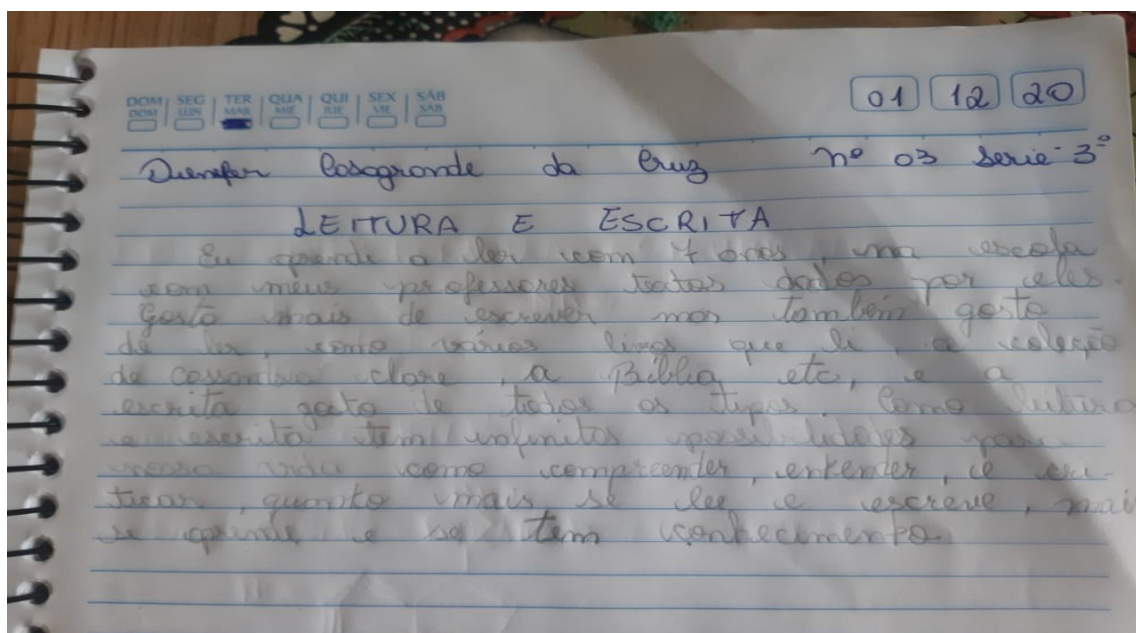 DOM SEG TER QUA QUI SEX SÁB
DOM LUN MAR MIÉ JUE VIE SÁB
01 12 20
Casagrande da Cruz nº 03 serie 3º
LEITURA E ESCRITA
Eu aprendi a ler com 7 anos, na escola
com meus professores textos dados por eles.
Gosto mais de escrever mas também gosto
de ler, como vários livros que li a coleção
de cassandra clare, a Bíblia, etc, e a
escrita gosto de todos os tipos. Como leitura
e escrita tem infinitas possibilidades para
nossa vida como compreender, entender, e cri-
ticar, quanto mais se lee e escreve, mai
se aprende e se tem conhecimento.